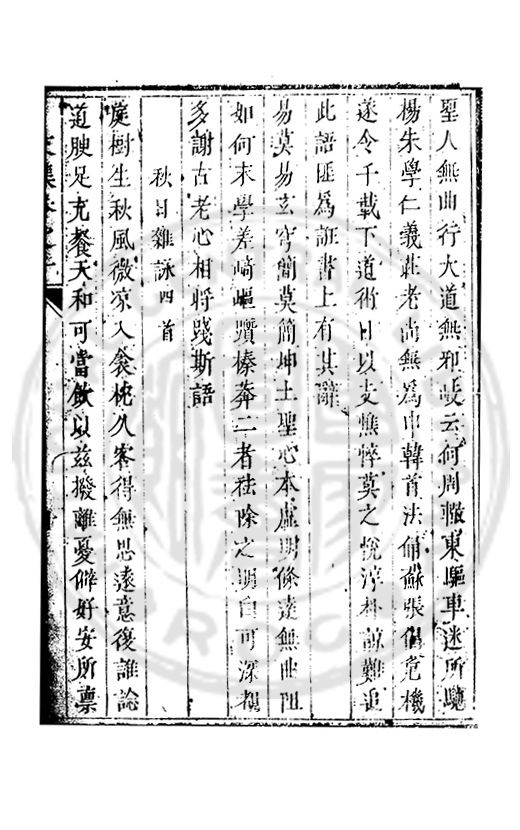 聖人無曲行大道無邪岐云何周轍東驅車迷所
楊朱學仁義莊老尚無為申韓首法備蘇張倡危機
遂令千載下道術日以支憔悴莫之悅淳朴諒難追
此語匪為誑書上有其辭
易莫易玄穹簡莫簡坤土聖心本虛明條達無曲阻
如何末學差崎嶇躓榛莽二者祛除之明白可深
多謝古老心相將踐斯語
秋日雜詠四首
庭樹生秋風微涼入衾枕久客得無思遠意復誰諗
道腴足充餐天和可當飲以茲撥離憂僻好安所稟